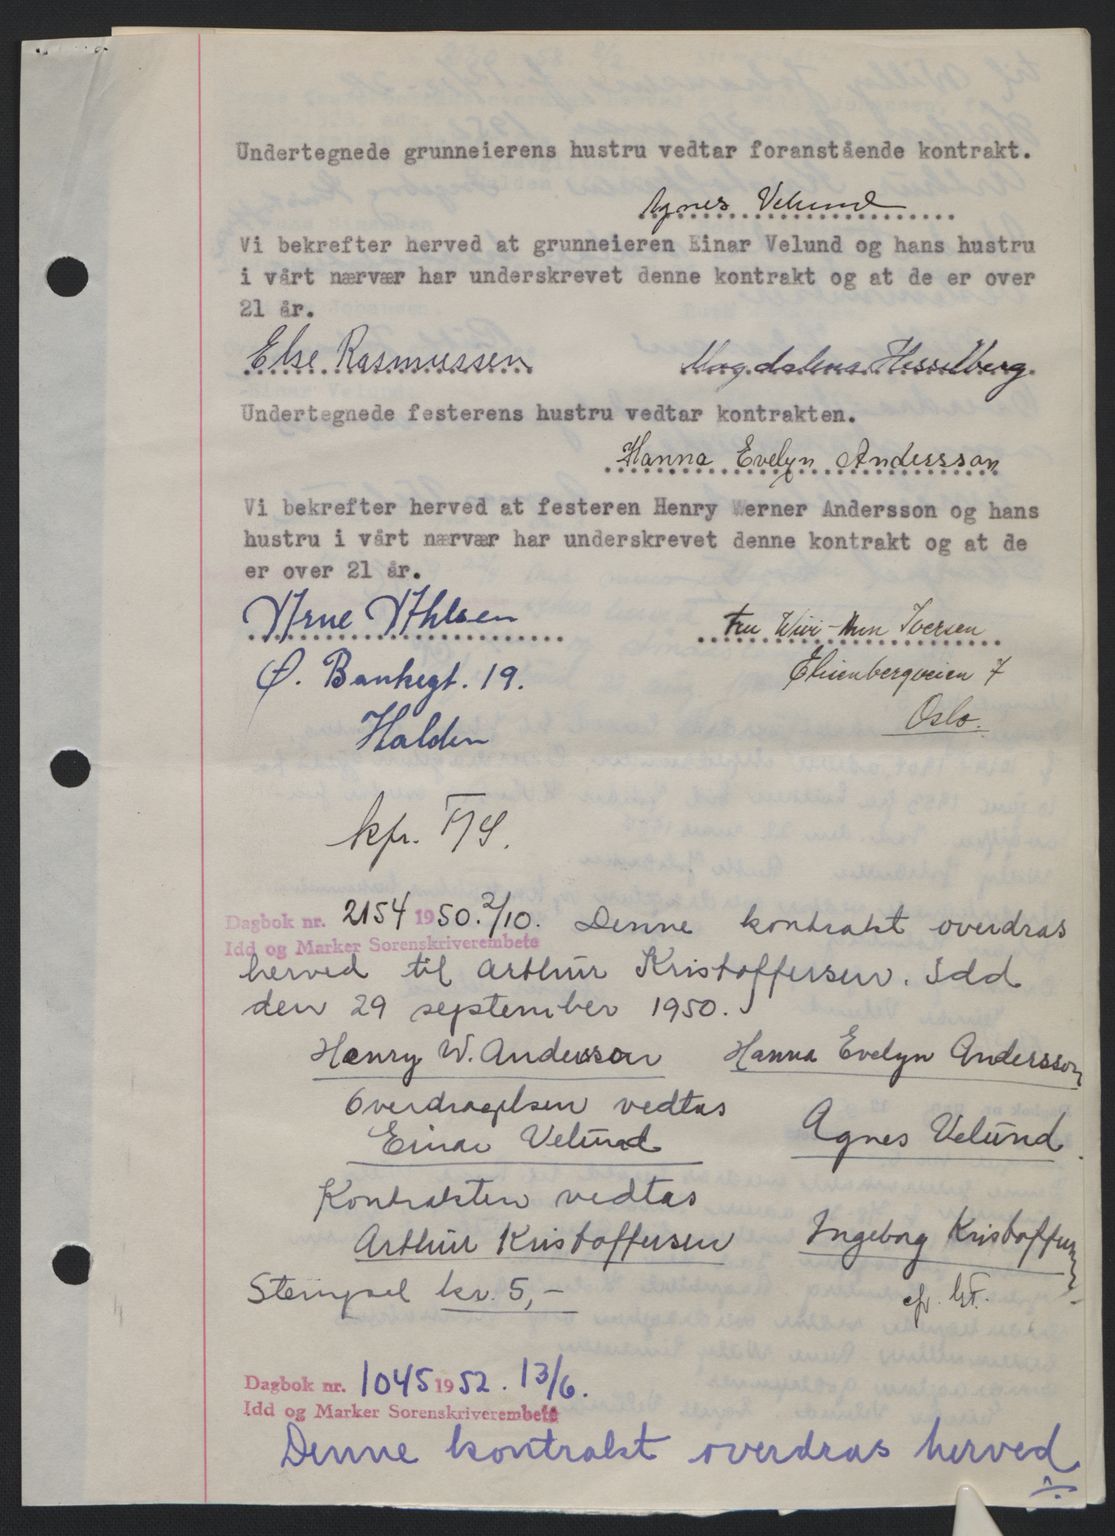 Undertegnede grunneierens hustru vedtar foranstående kontrakt.
Agnes Velund
Vi bekrefter herved at grunneieren Einar Velund og hans hustru
i vårt nærvær har underskrevet denne kontrakt og at de er over
21 år.
Else Rasmussen Magdalena Hesselberg
Undertegnede festerens hustru vedtar kontrakten.
Hanna Evelyn Andersson
Vi bekrefter herved at festeren Henry Werner Andersson og hans
hustru i vårt nærvær har underskrevet denne kontrakt og at de
er over 21 år.
Arne Ahlsen fru Wivi-Ann Iversen
Ø. Bankegt. 19. Elisenbergveien 7
Halden Oslo.
kfr.
Dagbok nr. 2154 1950. 2/10. Denne kontrakt overdras
Idd og Marker Sorenskriverembete
herved til Arthur Kristoffersen. Idd
den 29 september 1950.
Henry W. Andersson Hanna Evelyn Andersson
Overdragelsen vedtas
Einar Velund Agnes Velund
Kontrakten vedtas
Arthur Kristoffersen Ingeborg Kristoffersen
Stempel kr. 5,-
Dagbok nr. 1045 1952. 13/6.
Idd og Marker Sorenskriverembete
Denne kontrakt overdras herved